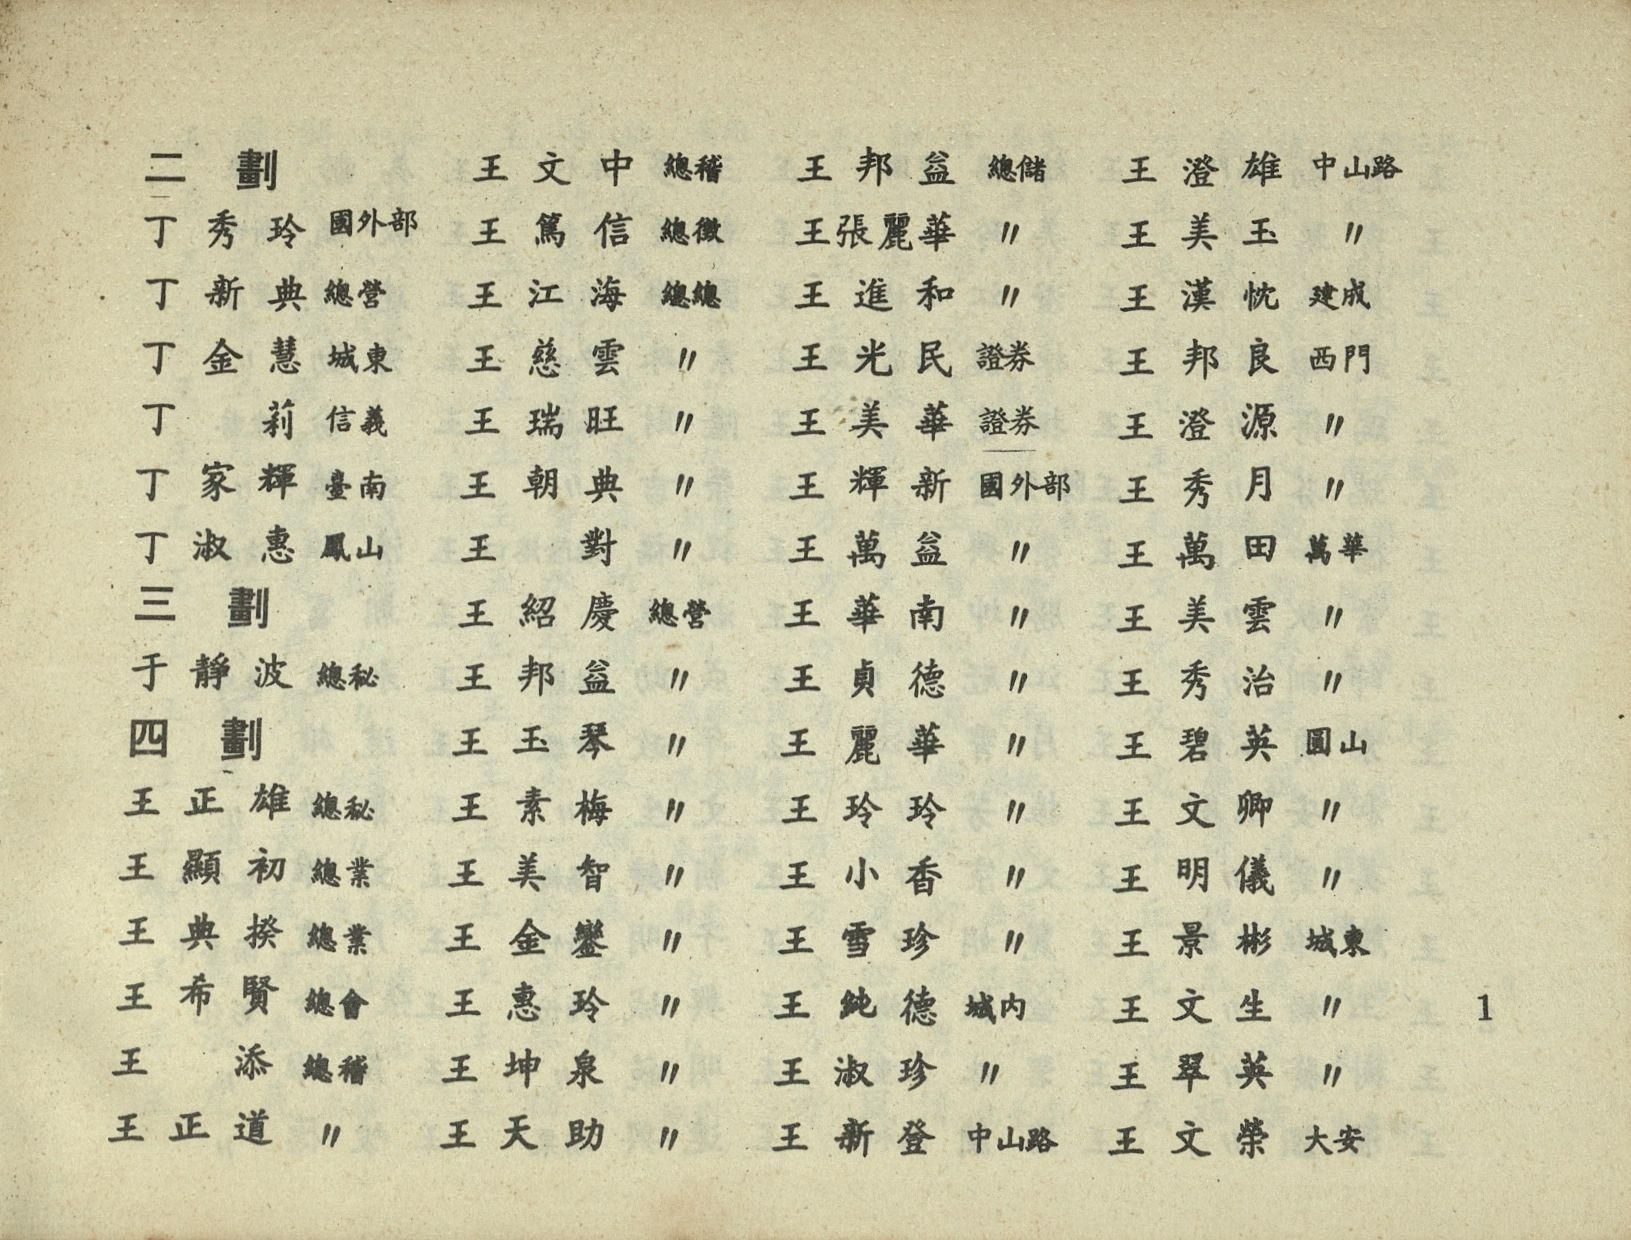 二劃
丁秀玲 國外部
丁新典 總營
丁金慧 城東
丁莉 信義
丁家輝 臺南
丁淑惠 鳳山
三劃
于靜波 總秘
四劃
王正雄 總秘
王顯初 總業
王典揆 總業
王希賢 總會
王添 總稽
王正道 〃
王文中 總稽
王篤信 總徵
王江海 總總
王慈雲 〃
王瑞旺 〃
王朝典 〃
王對 〃
王紹慶 總營
王邦益 〃
王玉琴 〃
王素梅 〃
王美智 〃
王金鑾 〃
王惠玲 〃
王坤泉 〃
王天助 〃
王邦益 總儲
王張麗華 〃
王進和 〃
王光民 證券
王美華 證券
王輝新 國外部
王萬益 〃
王華南 〃
王貞德 〃
王麗華 〃
王玲玲 〃
王小香 〃
王雪珍 〃
王純德 城内
王淑珍 〃
王新登 中山路
王澄雄 中山路
王美玉 〃
王漢忱 建成
王邦良 西門
王澄源 〃
王秀月 〃
王萬田 萬華
王美雲 〃
王秀治 〃
王碧英 圓山
王文卿 〃
王明儀 〃
王景彬 城東
王文生 〃
王翠英 〃
王文榮 大安
1